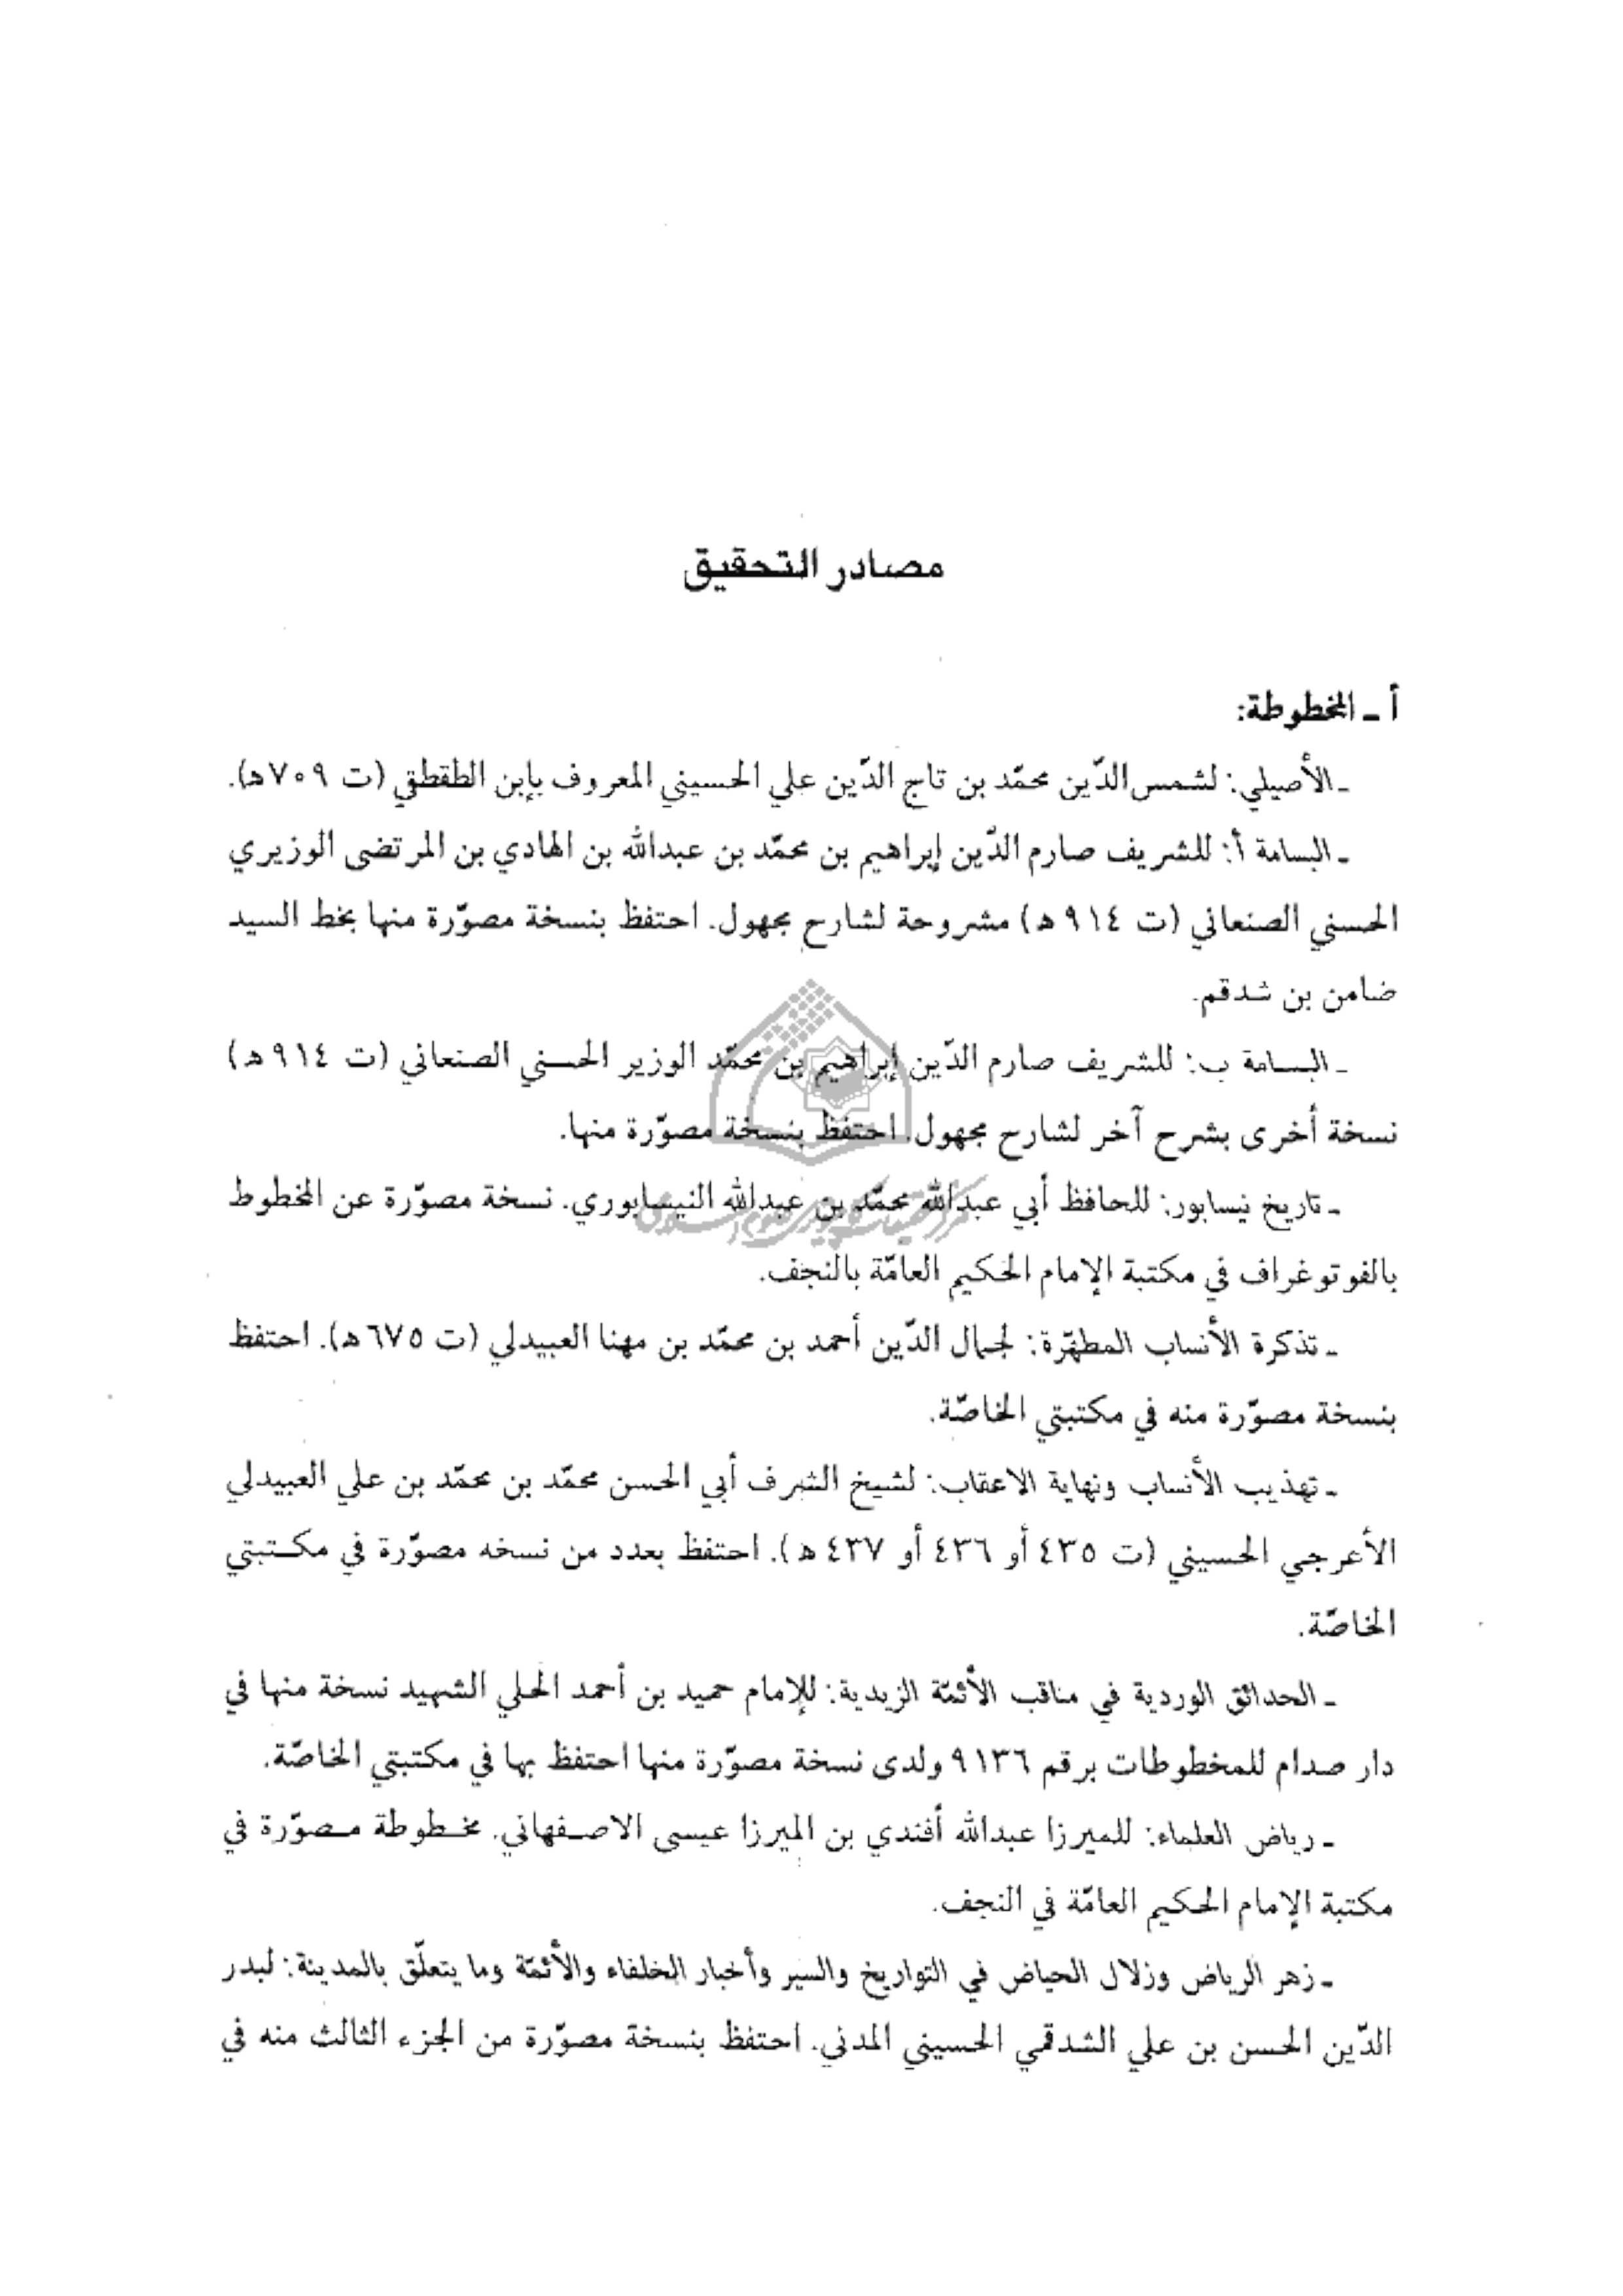 مصادر التحقيق
أ ـ المخطوطة:
ـ الأصيلي: لشمس الدّين محمّد بن تاج الدّين علي الحسيني المعروف بإبن الطقطقي (ت ٧٠٩ه).
ـ البسامة أ: للشريف صارم الدّين إبراهيم بن محمّد بن عبدالله بن الهادي بن المرتضى الوزيري
الحسني الصنعاني (ت ٩١٤ ه) مشروحة لشارح مجهول. احتفظ بنسخة مصوّرة منها بخط السيد
ضامن بن شدقم.
ـ البسامة ب: للشريف صارم الدّين إبراهيم بن محمّد الوزير الحسني الصنعاني (ت ٩١٤ ه)
نسخة أخرى بشرح آخر لشارح مجهول. احتفظ بنسخة مصوّرة منها.
ـ تاريخ نيسابور: للحافظ أبي عبدالله محمّد بن عبدالله النيسابوري. نسخة مصوّرة عن المخطوط
بالفوتوغراف في مكتبة الإمام الحكيم العامّة بالنجف.
ـ تذكرة الأنساب المطهّرة: لجمال الدّين أحمد بن محمّد بن مهنا العبيدلي (ت ٦٧٥ه). احتفظ
بنسخة مصوّرة منه في مكتبتي الخاصّة.
ـ تهذيب الأنساب ونهاية الاعقاب: لشيخ الشرف أبي الحسن محمّد بن محمّد بن علي العبيدلي
الأعرجي الحسيني (ت ٤٣٥ أو ٤٣٦ أو ٤٣٧ ه). احتفظ بعدد من نسخه مصوّرة في مكتبتي
الخاصّة.
ـ الحدائق الوردية في مناقب الأئمّة الزيدية: للإمام حميد بن أحمد المحلي الشهيد نسخة منها في
دار صدام للمخطوطات برقم ٩١٣٦ ولدى نسخة مصوّرة منها احتفظ بها في مكتبتي الخاصّة.
ـ رياض العلماء: للميرزا عبدالله أفندي بن الميرزا عيسى الاصفهاني. مخطوطة مصوّرة في
مكتبة الإمام الحكيم العامّة في النجف.
ـ زهر الرياض وزلال الحياض في التواريخ والسير وأخبار الخلفاء والأئمّة وما يتعلّق بالمدينة: لبدر
الدّين الحسن بن علي الشدقمي الحسيني المدني. احتفظ بنسخة مصوّرة من الجزء الثالث منه في